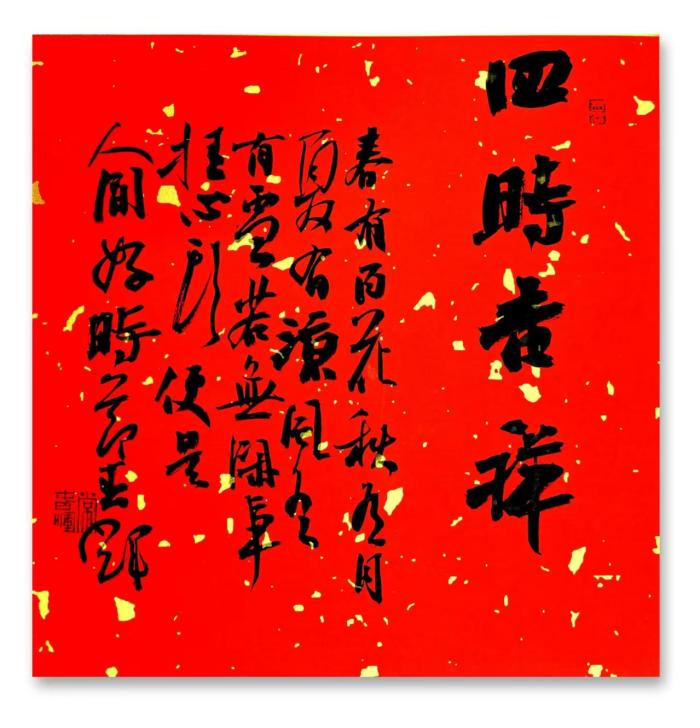 四時吉祥
春有百花秋有月
夏有涼風冬
有雪若無閑事
挂心頭便是
人間好時節